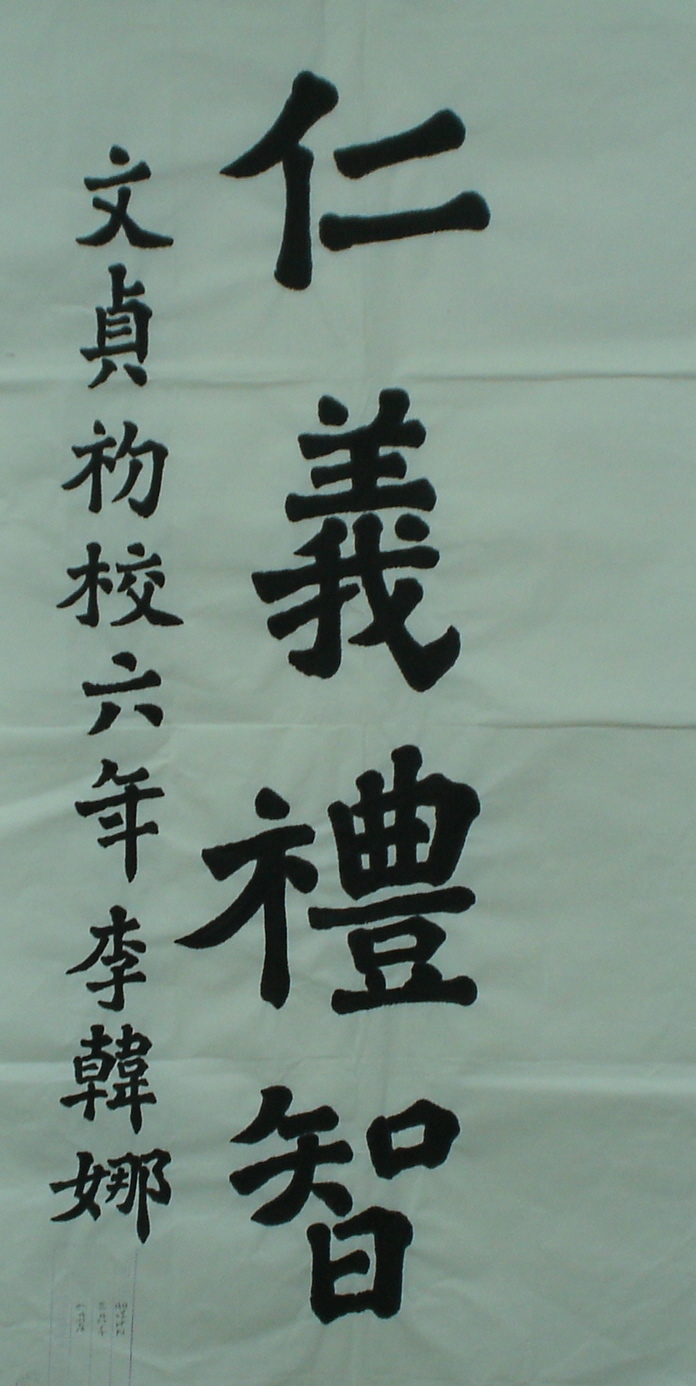 仁義禮智
文貞初校六年李韓娜